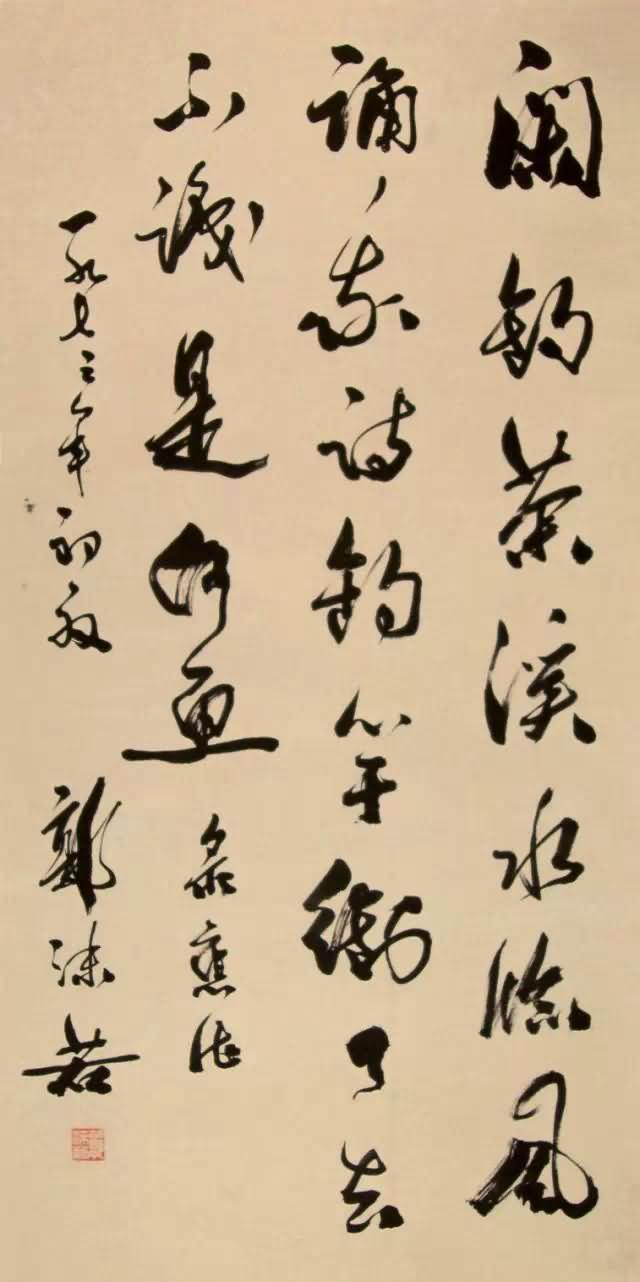 閑釣茶溪水臨風
誦我詩釣竿銜了去
不識是何魚 錄舊作
一九七三年初
郭沫若